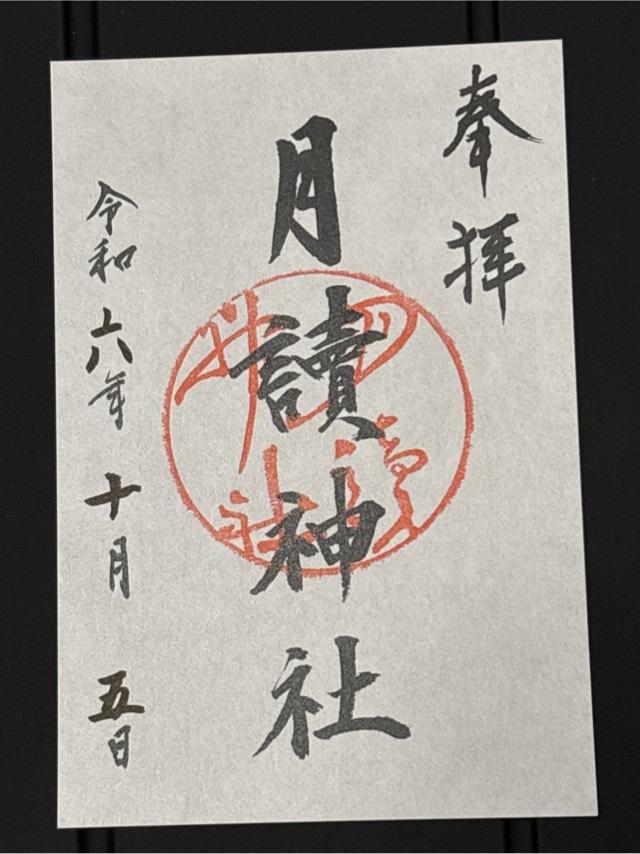 奉拝
月讀神社
令和六年十月五日